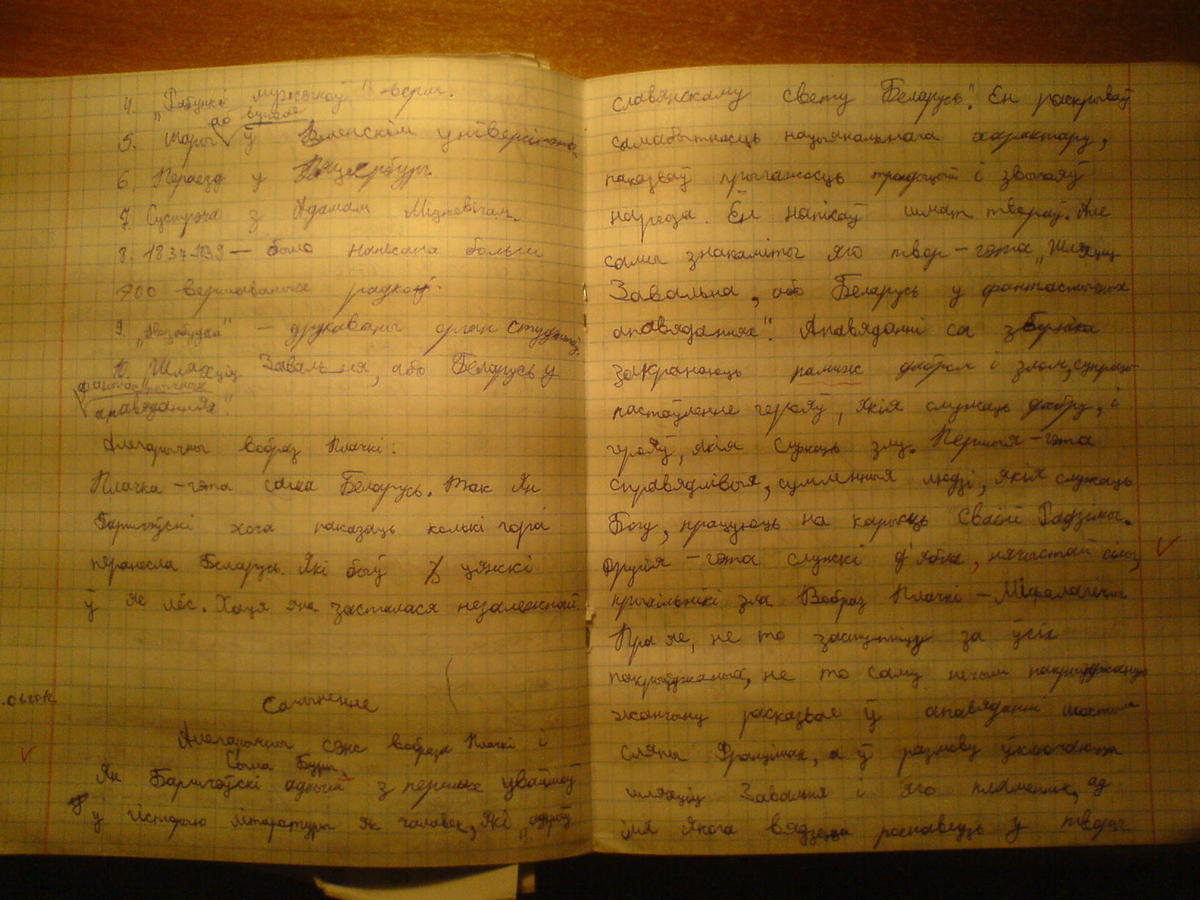 4. „Рабункі мужыкоў" - верш.
5. Мары аб вучобе ў Віленскім універсітэце.
6. Пераезд у Пецярбург.
7. Сустрэча з Адамам Міцкевічам.
8. 1837-1839 — было напісана больш
700 вершаваных радкоў.
9. „Незабудка" — друкаваны орган студэнтаў.
10. Шляхціц Завальня, або Беларусь у
фантастычных
апавяданнях".
Алегарычны вобраз Плачкі:
Плачка - гэта сама Беларусь. Так Ян
Баршчэўскі хоча паказаць колькі гора
перанесла Беларусь. Які быў цяжкі
ў яе лёс. Хаця яна засталася незалежнай
Сачыненне
Алегарычны сэнс вобраза Плачкі і
Сына Буры
Ян Баршчэўскі адным з першых увайшоў
у гісторыю літаратуры як чалавек, які „адкрыў
славянскаму свету Беларусь". Ён раскрываў
самабытнасць нацыянальнага характару,
паказваў прыгажосць традыцый і звычаяў
народа. Ён напісаў шмат твораў. Але
самы знакаміты яго твор - гэта „Шляхціц
Завальня, або Беларусь у фантастычных
апавяданнях". Апавяданні са зборніка
закранаюць паміж дабром і злом, супраць-
пастаўленне герояў, якія служаць дабру, і
герояў, якія служаць злу. Першыя - гэта
справядлівыя, сумленныя людзі, якія служаць
Богу, працуюць на карысць сваёй Радзімы.
Другія - гэта служкі д'ябла, нячыстай сілы,
зла Вобраз Плачкі - Міфалагічны
Пра яе, не то заступніцу за ўсіх
пакрыўджаных, не то саму некім пакрыўджаную
жанчыну расказвае ў апавяданні
сляпы Францішак, а ў размову ўключаюцца
шляхціц Завальня і яго пляменнік, ад
імя якога вядзецца роспаведзь у творы